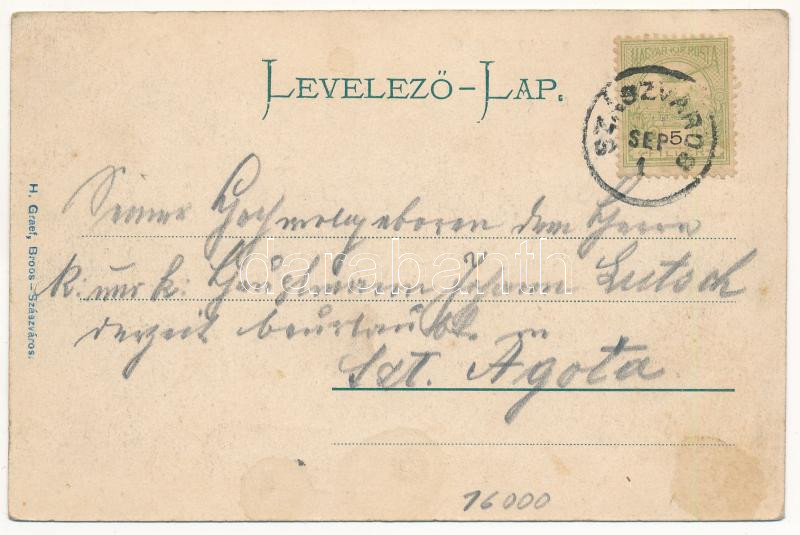 LEVELEZŐ-LAP.
MAGYAR KIR. POSTA
SZÁSZVÁROS
SEP 5
1
H. Graef, Broos – Szászváros.
Seiner Hochwolgeboren dem Herrn
k: und k: Hauptmann Johann Lutsch
derzeit beurlaubt in
Szt. Ágota
darabanth
16000